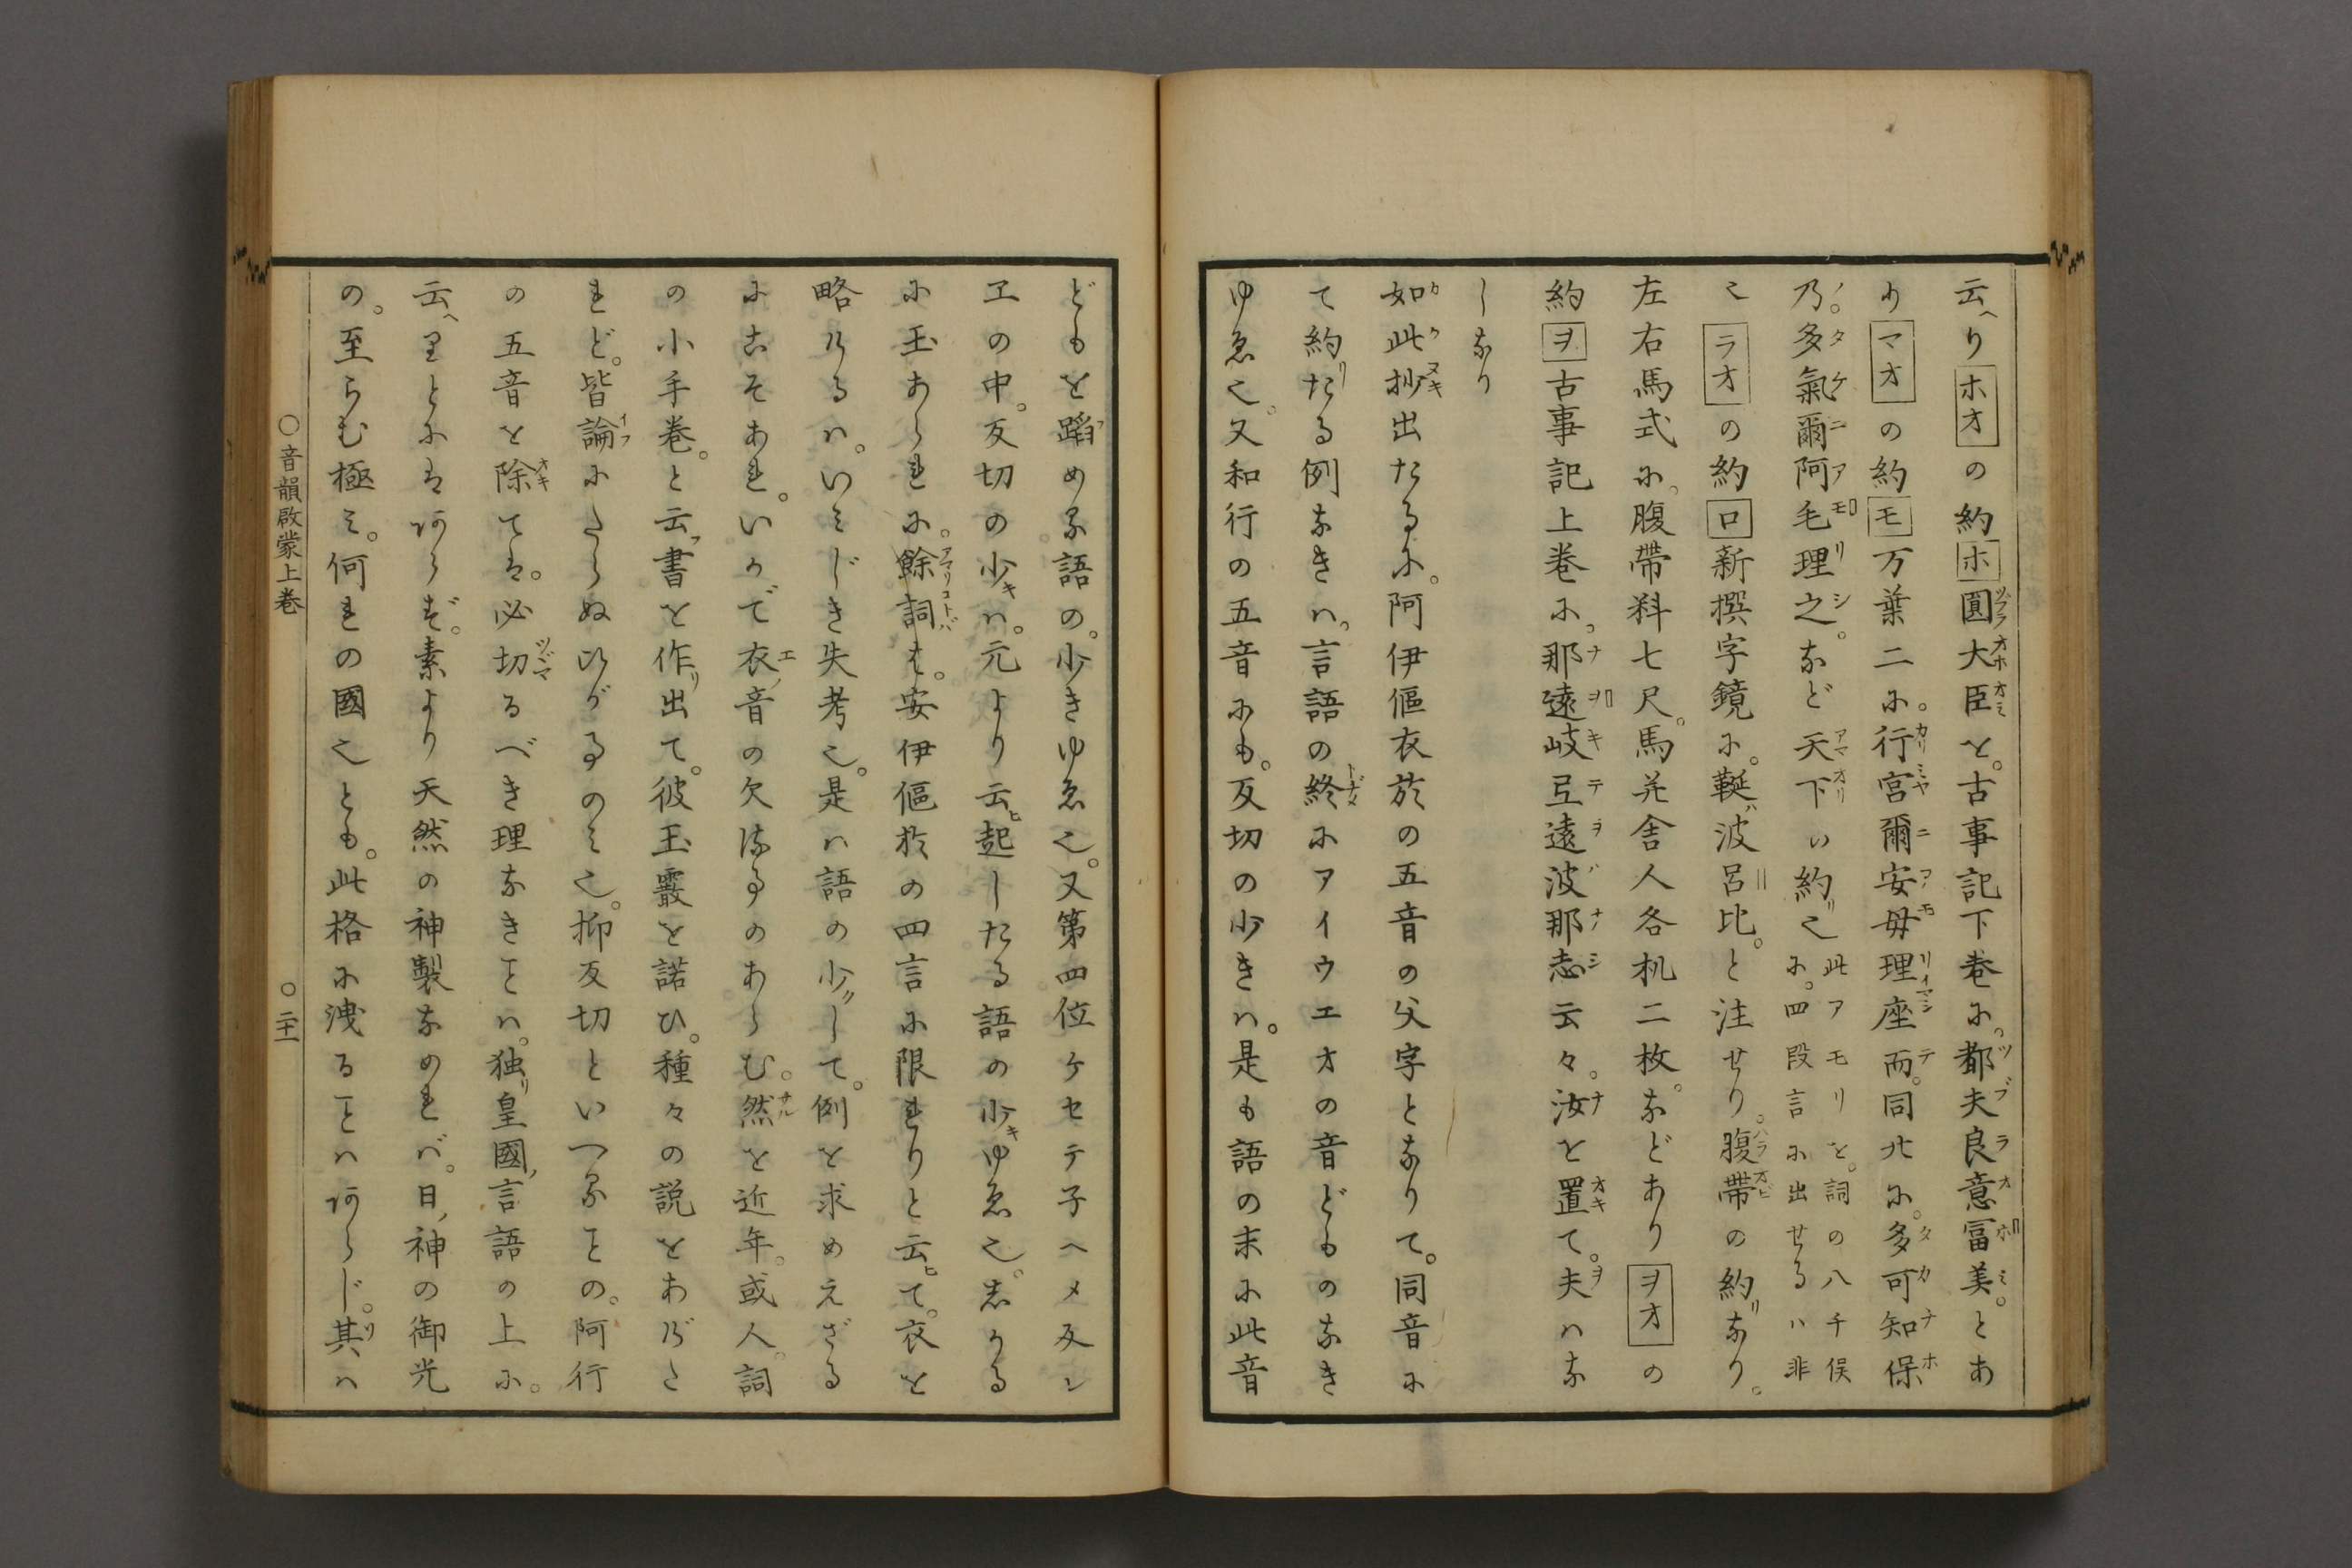 云へりホオの約ホ圓大臣を。古事記下巻に。都夫良意冨美。とあ
りマオの約モ万葉二に。行宮爾安母理座而。同十九に。多可知保
乃。多氣爾阿毛理之。など天下の約之此アモリを。詞の八千俣に。四段言に出せるハ非
之ラオの約ロ新撰字鏡に。鞓波呂比。と注せり。腹帯の約なり。
左右馬式に。腹帶料七尺。馬并舎人各机二枚。などありヲオの
約ヲ古事記上巻に。那遠岐弖遠波那志云々。汝を置て。夫ハな
しなり
如此抄出たるに。阿伊傴衣於の五音の父字となりて。同音に
て約たる例なきハ。言語の終にアイウエオの音どものなき
ゆゑ也。又和行の五音にも。反切の少きハ。是も語の末に此音
どもを蹈める語の。少きゆゑ也。又第四位ケセテ子ヘメエレ
ヱの中。反切の少ハ。元より云起したる語の少ゆゑ也。志かる
に玉あられに。餘詞は。安伊傴於の四言に限れりと云て。衣を
略けるハ。いミじき失考也。是ハ語の少して。例を求めえざる
にこそあれ。いかで衣音の欠たる事のあらむ。然を近年。或人。詞
の小手巻。と云書を作出て。彼玉霰を諾ひ。種々の説をあげた
れど。皆論にたらぬひがことのミ也。抑反切といへることの。阿行
の五音を除ては。必切るべき理なきことハ。独皇國言語の上に。
云べきことにはあらず。素より天然の神製なめれバ。日神の御光
の。至らむ極ミ。何れの國也とも。此格に洩ることハあらじ。其ハ
○音韻啟蒙上巻　○二十一